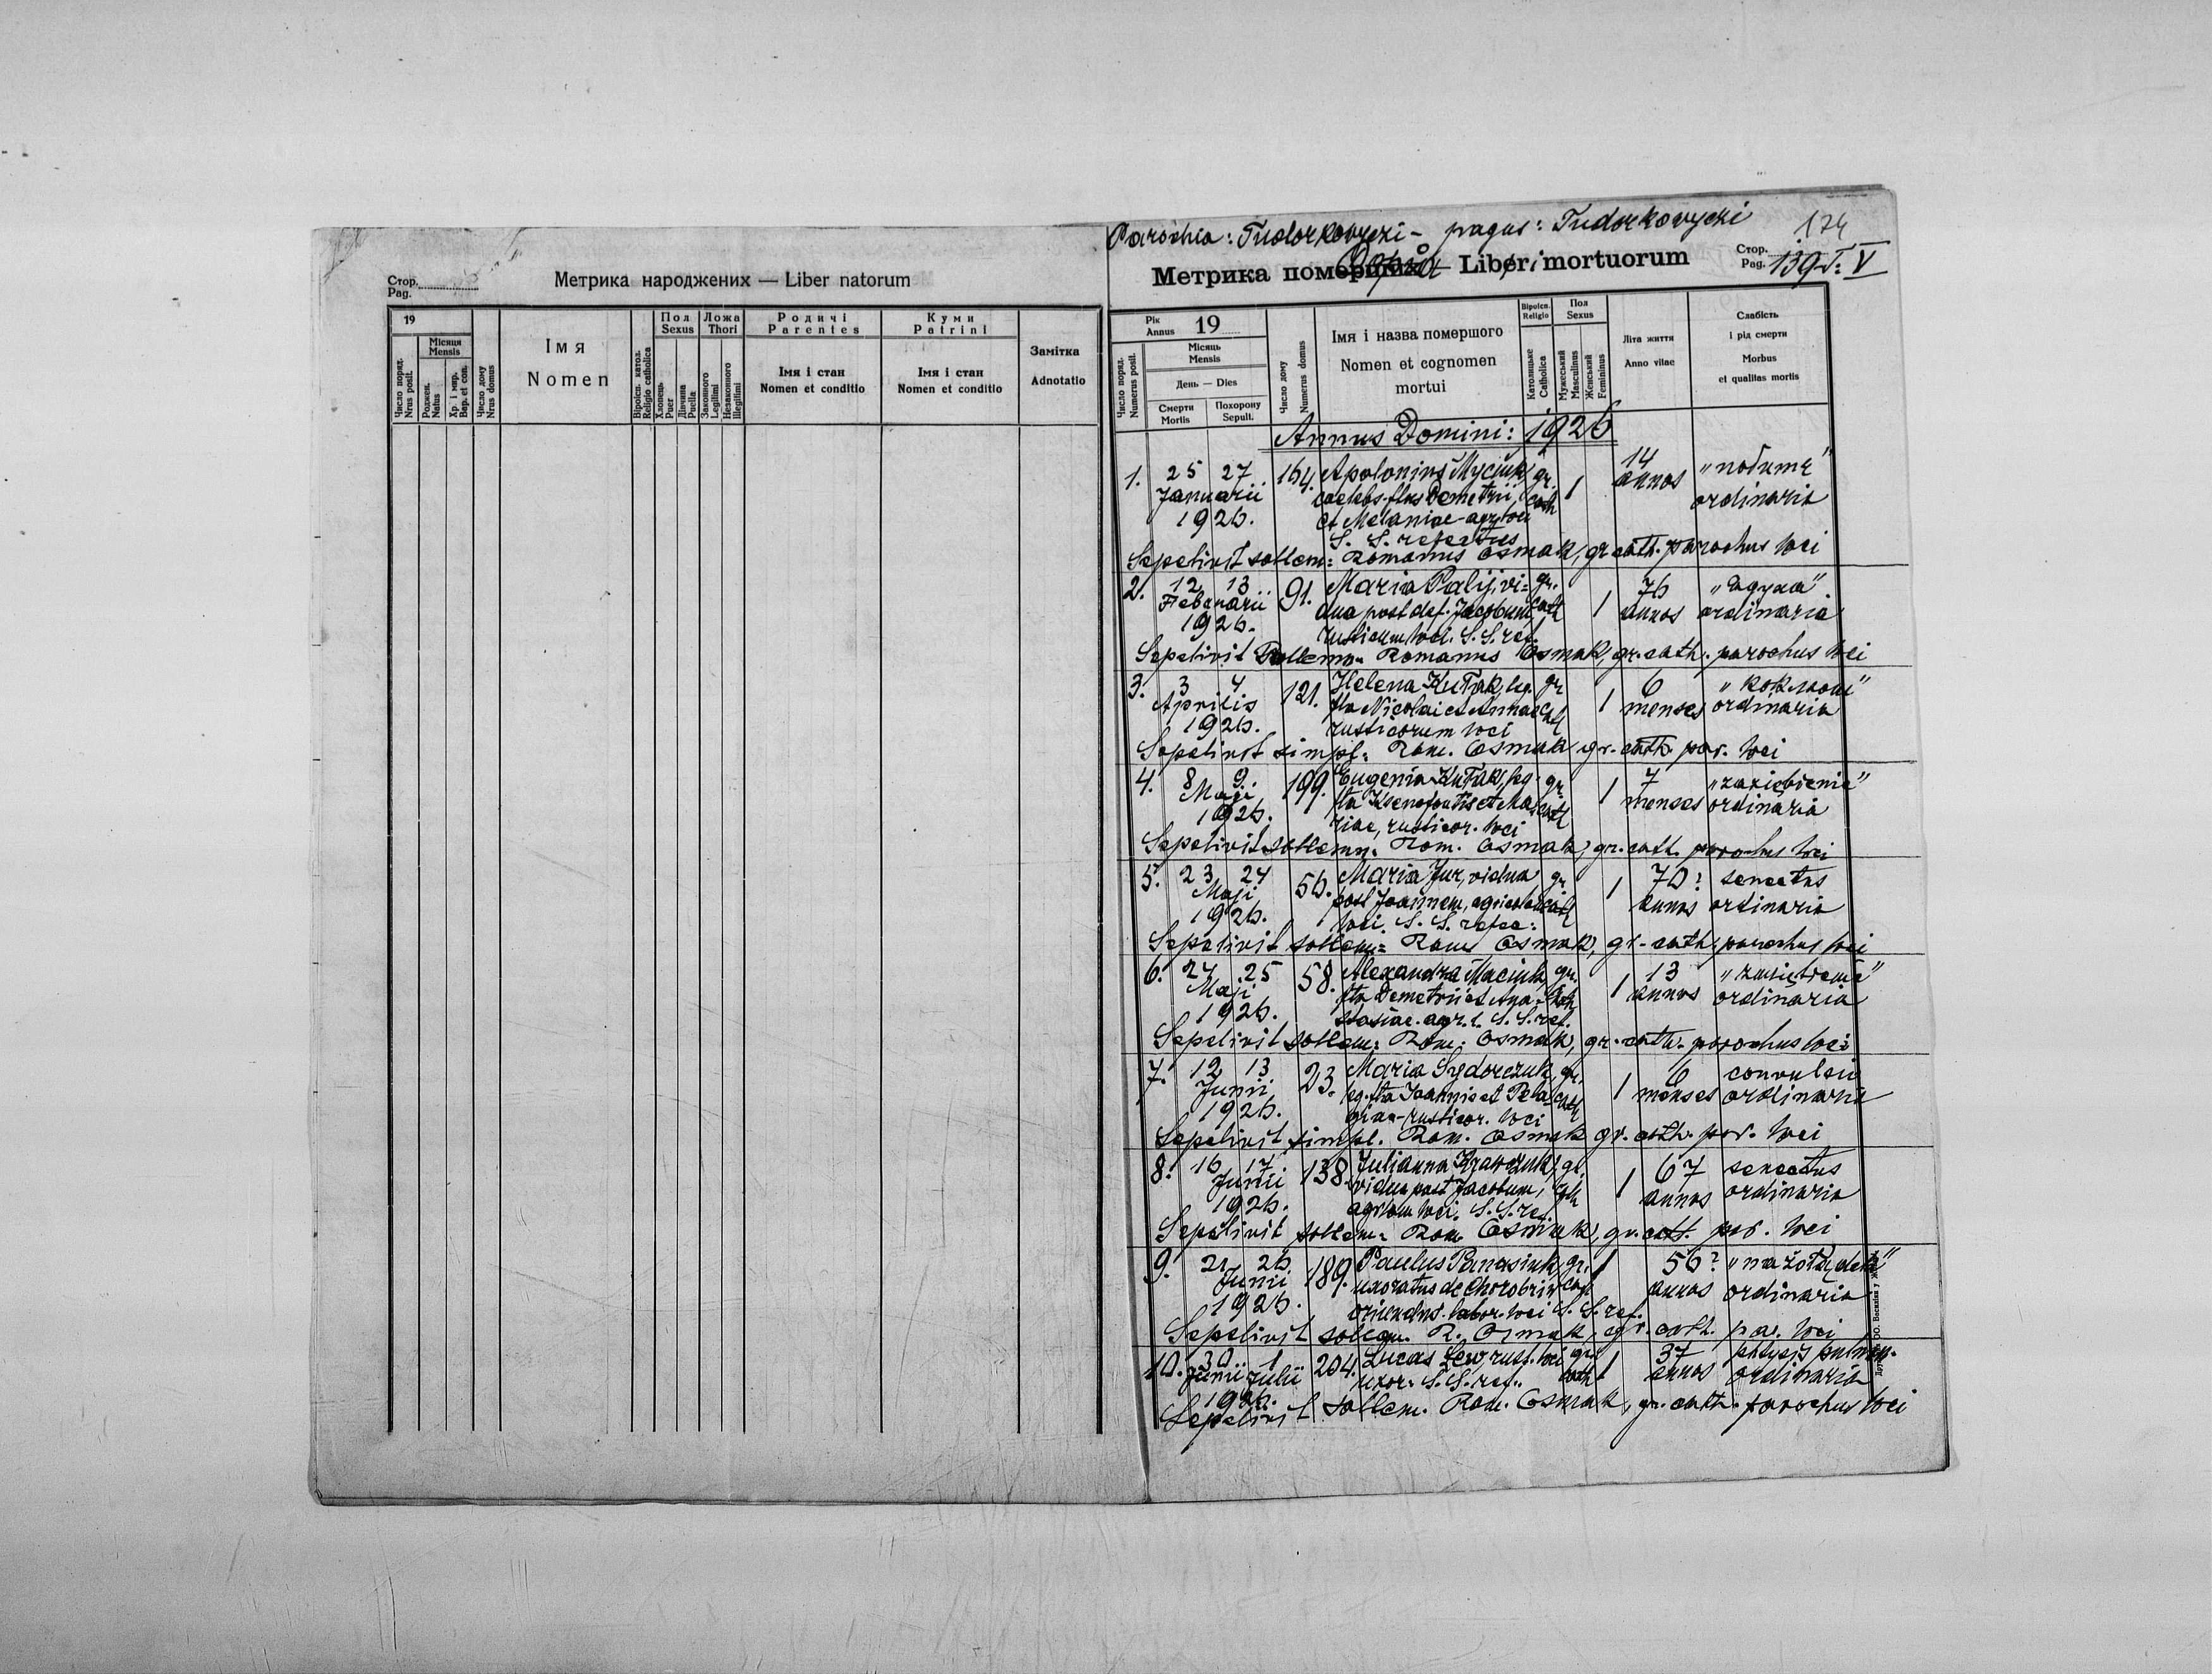 Стор. Pag.
Метрика народжених — Liber natorum
19
Число поряд. Nrus posit.
Місяця Mensis
Роджен. Natus
Хр. і мир. Bap. et con.
Число дому Nrus domus
Імя
Nomen
Віроісп. катол. Religio catholica
Пол Sexus
Хлопець Puer
Дівчина Puella
Ложа Thori
Законного Legitimi
Незаконного Illegitimi
Родичі
Parentes
Імя і стан
Nomen et conditio
Куми
Patrini
Імя і стан
Nomen et conditio
Замітка
Adnotatio
Parochia: Tudorkovyczi - pagus: Tudorkovyczi 174
Метрика померших Libri mortuorum
Стор. Pag. 139 T. V
Рік Annus 19
Число поряд. Numerus posit.
Місяць Mensis
День — Dies
Смерти Mortis
Похорону Sepult.
Число дому Numerus domus
Імя і назва помершого
Nomen et cognomen
mortui
Віроісп. Religio
Католицьке Catholica
Пол Sexus
Мужеський Masculinus
Женський Femininus
Літа життя
Anno vitae
Слабість
і рід смерти
Morbus
et qualitas mortis
Annus Domini: 1926
1. 25 27 164. Apolonius Myciuk gr. 1 14
Januarii caelebs flus Demetrii cath annos ordinaria
1926. et Melaniae
S. S. refectus
Sepelivit sollem: Romanus Osmak, gr. cath. parochus loci
2. 12 13 91. Maria Palij, vi- gr. 1 76
Februarii dua post def. Jacobum cath annos ordinaria
1926. rusticum loci. S. S. ref.
Sepelivit sollemn. Romanus Osmak, gr. cath. parochus loci
3. 3 4. 121. Helena gr 1 6 "коклюш"
Aprilis fta Nicolai et Annae cath menses ordinaria
1926. rusticorum loci
Sepelivit simpl. Rom. Osmak gr. cath. par. loci
4. 8 9. 199. Eugenia gr. 1 7 "zaziębienie"
Maji fta Ksenofontis et Ma- cath menses ordinaria
1926. riae, rusticor. loci
Sepelivit sollemn. Rom. Osmak, gr. cath. parochus loci
5. 23 24 56. Maria Jur, vidua gr 1 70? senectus
Maji post Joannem, agricolam cath annos ordinaria
1926. loci. S. S. refec.
Sepelivit sollem= Rom Osmak, gr. cath. parochus loci
6. 24 25 58. Alexandra Maciuk, gr. 1 13 "zaziębienie"
Maji fta Demetrii et Ana- cath annos ordinaria
1926. stasiae. agr. l. S. S. ref.
Sepelivit sollem: Rom. Osmak, gr. cath. parochus loci
7. 12 13 23. Maria Sydorczuk, gr. 1 6 convulsii
Junii leg. fta Joannis et Pela- cath menses ordinaria
1926. giae - rusticor. loci
Sepelivit simpl. Rom. Osmak gr. cath. par. loci
8. 16 17 138. Julianna Krawczuk, gr. 1 67 senectus
Junii vidua post Jacobum, cath annos ordinaria
1926. loci. S. S. ref.
Sepelivit sollem= Rom Osmak, gr. cath. par. loci
9. 21 26 189. Paulus Panasiuk, gr. 1 56?
Junii uxoratus de Chorobriw cath annos ordinaria
1926. oriundus. labor. loci S. S. ref.
Sepelivit sollem. R. Osmak, gr. cath. par. loci
10. 30 1 204. Lucas Lew, rust. loci gr. 1 37 phtysis pulmon.
Junii Julii uxor. S. S. ref. cath annos ordinaria
1926.
Sepelivit sollem. Rom. Osmak, gr. cath. parochus loci